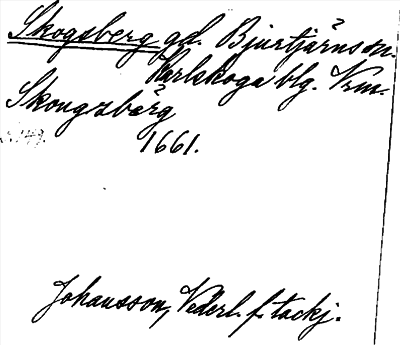 Skogsberg gd. Bjurtjärns sn.
Karlskoga blg. Vrm.
Skougzbärg
1661.
Johansson, Vederl. f. tackj.